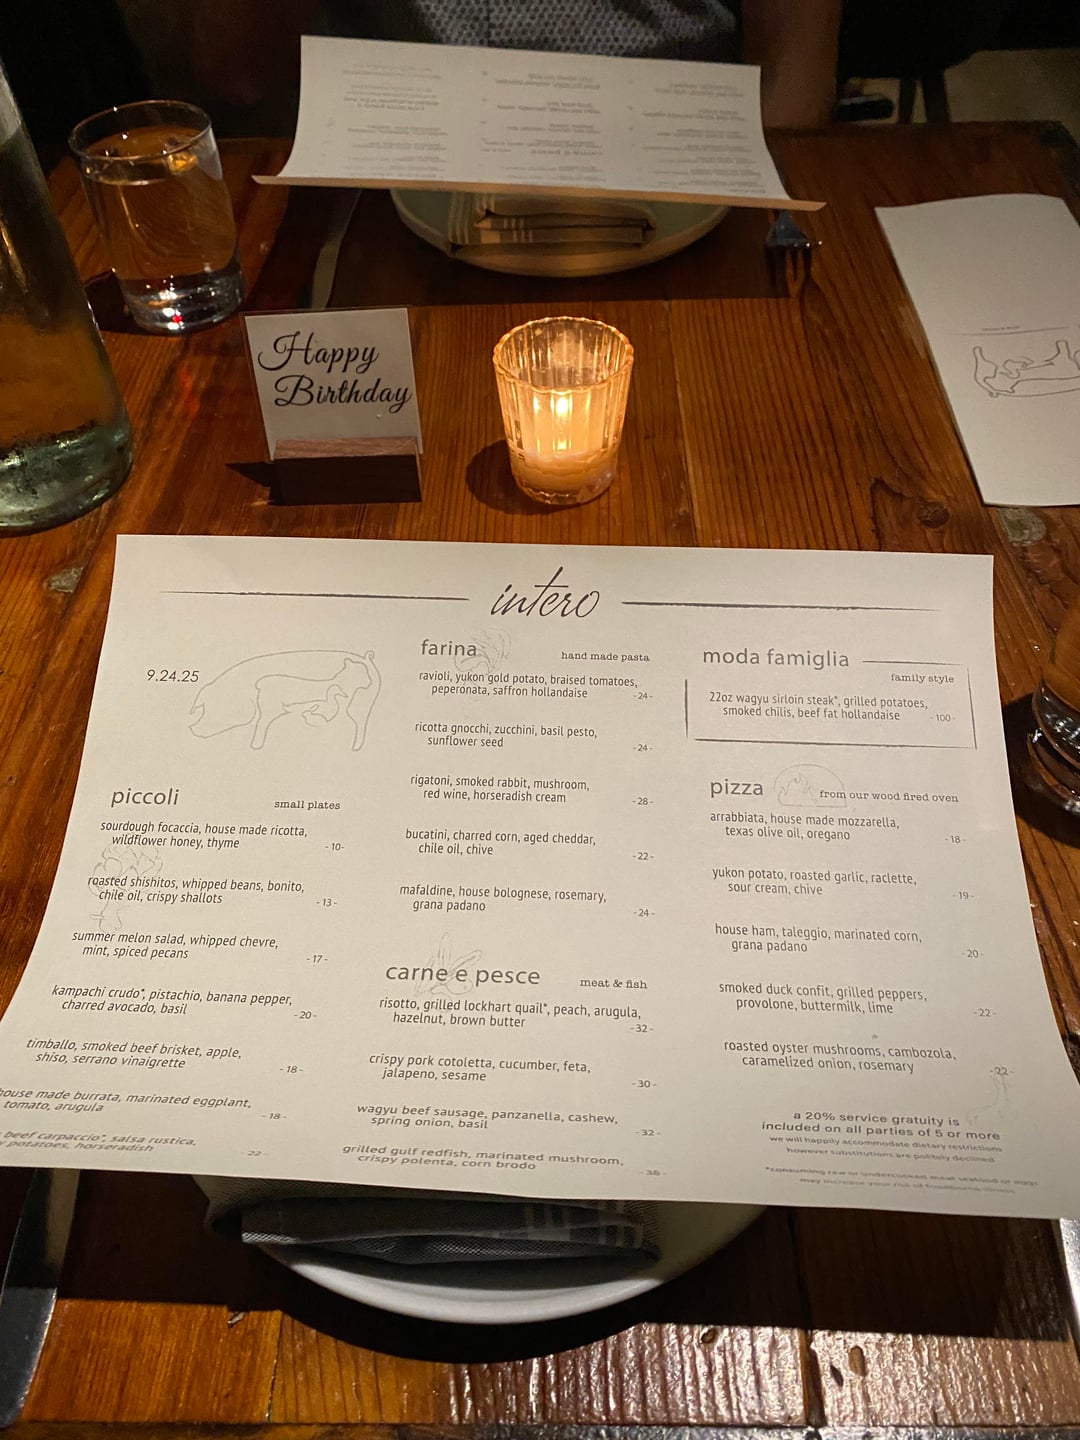 Happy
Birthday
intero
9.24.25
piccoli
small plates
sourdough focaccia, house made ricotta,
wildflower honey, thyme
- 10-
roasted shishitos, whipped beans, bonito,
chile oil, crispy shallots
- 13 -
summer melon salad, whipped chevre,
mint, spiced pecans
- 17 -
kampachi crudo*, pistachio, banana pepper,
charred avocado, basil
- 20 -
timballo, smoked beef brisket, apple,
shiso, serrano vinaigrette
- 18 -
house made burrata, marinated eggplant,
tomato, arugula
- 18 -
beef carpaccio*, salsa rustica,
potatoes, horseradish
- 22 -
farina
hand made pasta
ravioli, yukon gold potato, braised tomatoes,
peperonata, saffron hollandaise
- 24 -
ricotta gnocchi, zucchini, basil pesto,
sunflower seed
- 24 -
rigatoni, smoked rabbit, mushroom,
red wine, horseradish cream
- 28 -
bucatini, charred corn, aged cheddar,
chile oil, chive
- 22 -
mafaldine, house bolognese, rosemary,
grana padano
- 24 -
carne e pesce
meat & fish
risotto, grilled lockhart quail*, peach, arugula,
hazelnut, brown butter
- 32 -
crispy pork cotoletta, cucumber, feta,
jalapeno, sesame
- 30 -
wagyu beef sausage, panzanella, cashew,
spring onion, basil
- 32 -
grilled gulf redfish, marinated mushroom,
crispy polenta, corn brodo
moda famiglia
family style
22oz wagyu sirloin steak*, grilled potatoes,
smoked chilis, beef fat hollandaise
- 100 -
pizza
from our wood fired oven
arrabbiata, house made mozzarella,
texas olive oil, oregano
- 18 -
yukon potato, roasted garlic, raclette,
sour cream, chive
- 19 -
house ham, taleggio, marinated corn,
grana padano
- 20 -
smoked duck confit, grilled peppers,
provolone, buttermilk, lime
- 22 -
roasted oyster mushrooms, cambozola,
caramelized onion, rosemary
- 22 -
a 20% service gratuity is
included on all parties of 5 or more
we will happily accommodate dietary restrictions
however substitutions are politely declined
*consuming raw or undercooked meat seafood or eggs
may increase your risk of foodborne illness